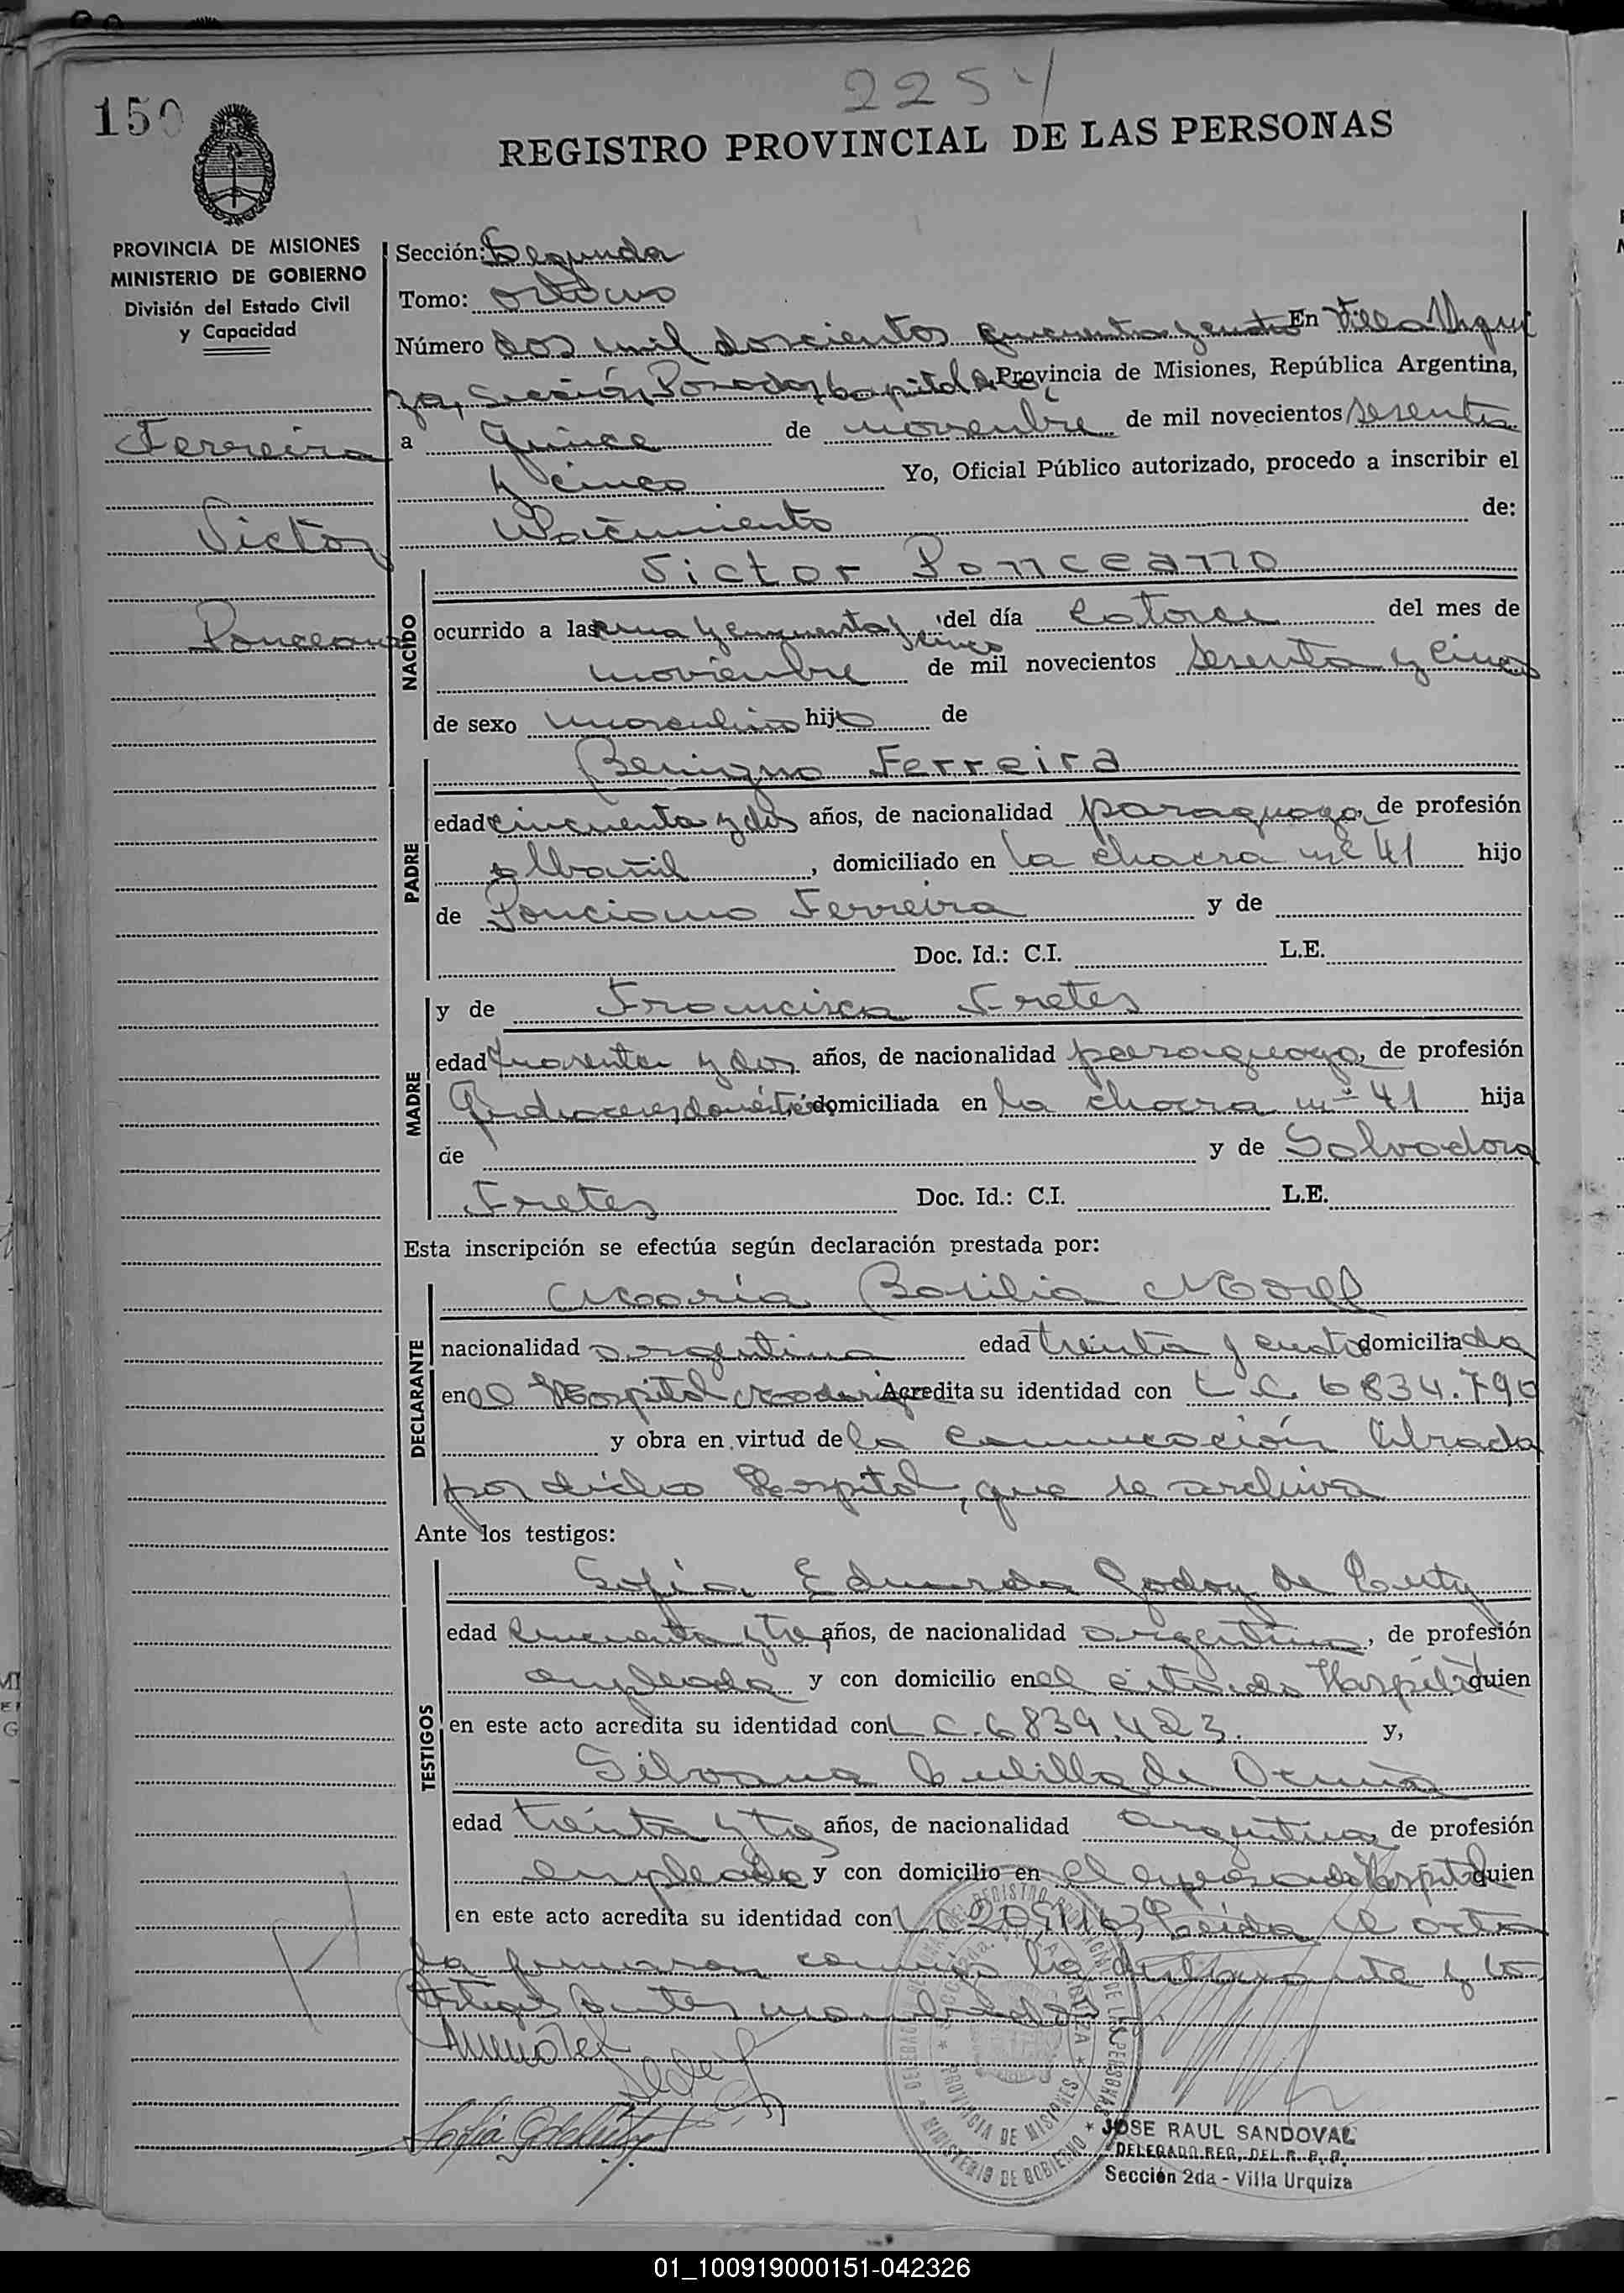 150
2254
REGISTRO PROVINCIAL DE LAS PERSONAS
PROVINCIA DE MISIONES
MINISTERIO DE GOBIERNO
División del Estado Civil
y Capacidad
Ferreira
Victor
Ponceano
Sección: Segunda
Tomo: octavo
Número dos mil doscientos cincuenta y cuatro En Villa Urqui
za, Sección Posadas, Capital de Provincia de Misiones, República Argentina,
a quince de noviembre de mil novecientos sesenta
y cinco Yo, Oficial Público autorizado, procedo a inscribir el
Nacimiento de:
NACIDO
Victor Ponceano
ocurrido a las una y cincuenta y cinco del día catorce del mes de
noviembre de mil novecientos sesenta y cinco
de sexo masculino hijo de
PADRE
Benigno Ferreira
edad cincuenta y dos años, de nacionalidad paraguaya, de profesión
albañil, domiciliado en la chacra nº 41 hijo
de Ponciano Ferreira y de
Doc. Id.: C.I. L.E.
MADRE
y de Francisca Fretes
edad cuarenta y dos años, de nacionalidad paraguaya, de profesión
quehaceres domésticos domiciliada en la chacra nº 41 hija
de y de Salvadora
Fretes Doc. Id.: C.I. L.E.
Esta inscripción se efectúa según declaración prestada por:
DECLARANTE
María Basilia Morel
nacionalidad argentina edad treinta y cuatro domiciliada
en el Hospital Madariaga Acredita su identidad con L.C. 6834.790
y obra en virtud de la comunicación librada
por dicho Hospital, que se archiva
Ante los testigos:
TESTIGOS
Sofía Eduarda Godoy de
edad cincuenta y tres años, de nacionalidad argentina, de profesión
empleada y con domicilio en el citado Hospital quien
en este acto acredita su identidad con L.C. 6839.423. y,
Silvana de
edad treinta y tres años, de nacionalidad argentina, de profesión
empleada y con domicilio en el expresado Hospital quien
en este acto acredita su identidad con Leída el acta
la firmaron conmigo la declarante y los
testigos antes nombrados
REGISTRO PROVINCIAL DE LAS PERSONAS
PROVINCIA DE MISIONES
MINISTERIO DE GOBIERNO
JOSE RAUL SANDOVAL
DELEGADO REG. DEL R. P. P.
Sección 2da - Villa Urquiza
01_100919000151-042326